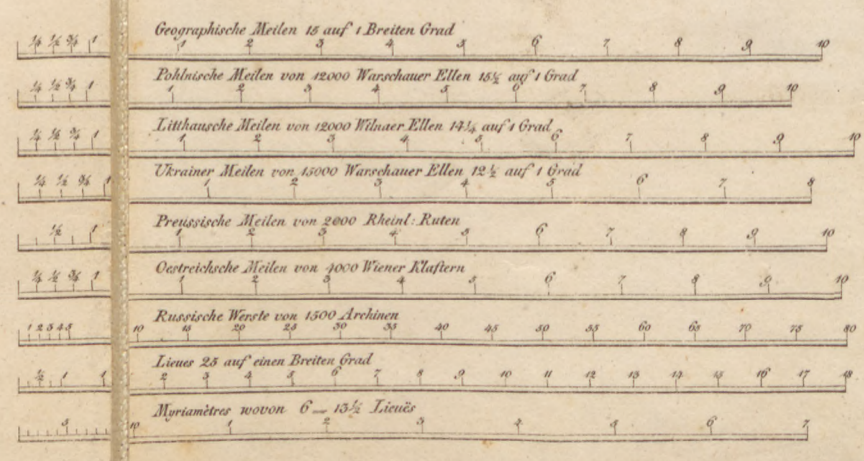 Geographische Meilen 15 auf 1 Breiten Grad
¼ ½ ¾ 1 1 2 3 4 5 6 7 8 9 10
Pohlnische Meilen von 12000 Warschauer Ellen 15½ auf 1 Grad
¼ ½ ¾ 1 1 2 3 4 5 6 7 8 9 10
Litthausche Meilen von 12000 Wilnaer Ellen 14¼ auf 1 Grad
¼ ½ ¾ 1 1 2 3 4 5 6 7 8 9 10
Ukrainer Meilen von 15000 Warschauer Ellen 12½ auf 1 Grad
¼ ½ ¾ 1 1 2 3 4 5 6 7 8
Preussische Meilen von 2000 Rheinl: Ruten
½ 1 1 2 3 4 5 6 7 8 9 10
Oestreichsche Meilen von 4000 Wiener Klaftern
¼ ½ ¾ 1 1 2 3 4 5 6 7 8 9 10
Russische Werste von 1500 Archinen
1 2 3 4 5 10 15 20 25 30 35 40 45 50 55 60 65 70 75 80
Lieues 25 auf einen Breiten Grad
½ 1 1 2 3 4 5 6 7 8 9 10 11 12 13 14 15 16 17 18
Myriamètres wovon 6 = 13½ Lieuës
5 10 1 2 3 4 5 6 7